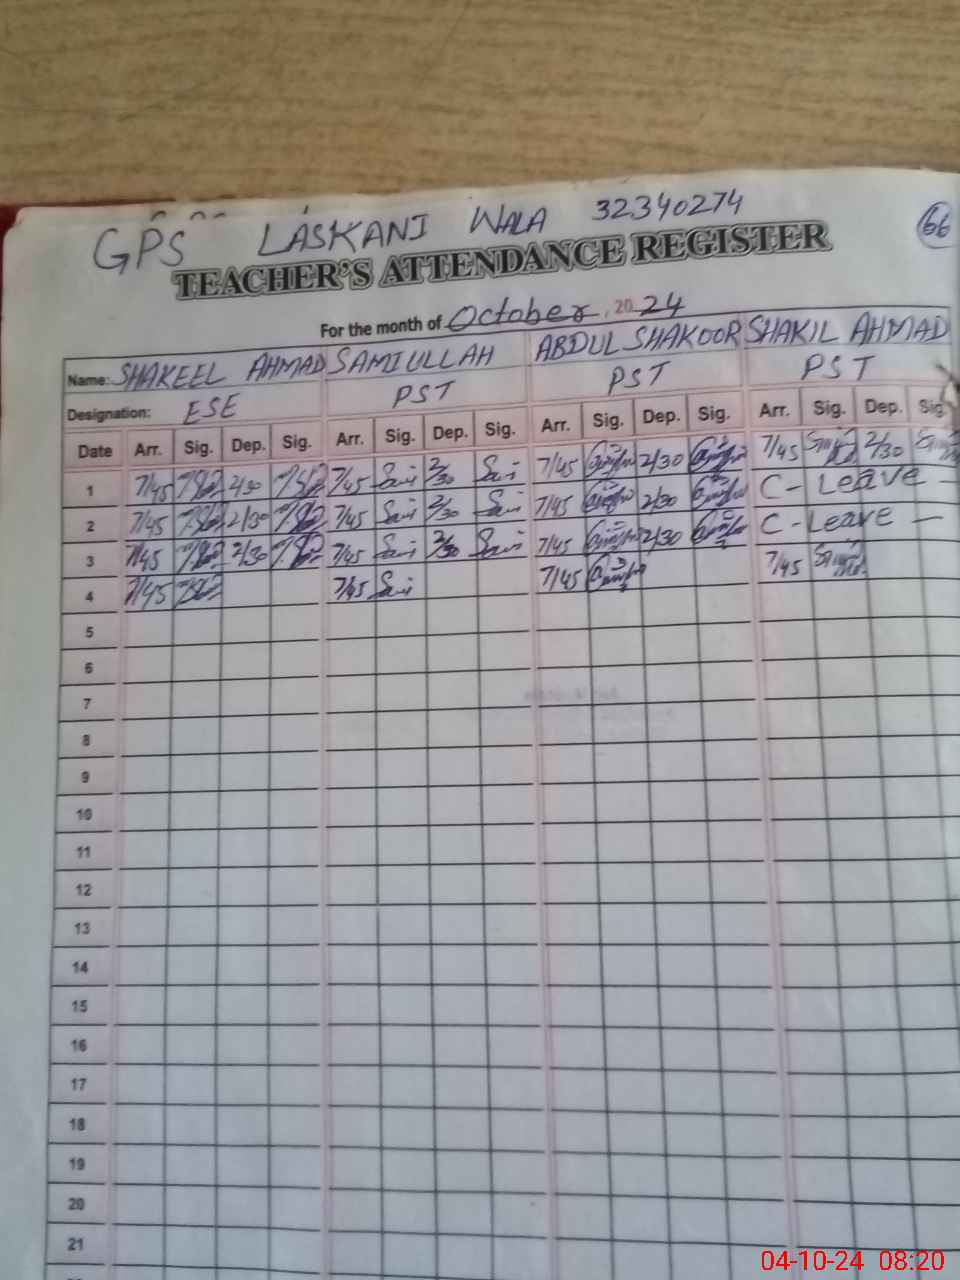 GPS LASKANI WALA 32340274
66
TEACHER'S ATTENDANCE REGISTER
For the month of October, 2024
Name: SHAKEEL AHMAD SAMIULLAH ABDUL SHAKOOR SHAKIL AHMAD
Designation: ESE PST PST PST
Date Arr. Sig. Dep. Sig. Arr. Sig. Dep. Sig. Arr. Sig. Dep. Sig. Arr. Sig. Dep. Sig.
1 7/45 2/30 7/45 Sami 2/30 Sami 7/45 2/30 7/45 2/30
2 7/45 2/30 7/45 Sami 2/30 Sami 7/45 2/30 C - Leave -
3 7/45 2/30 7/45 Sami 2/30 Sami 7/45 2/30 C - Leave -
4 7/45 7/45 Sami 7/45 7/45
5
6
7
8
9
10
11
12
13
14
15
16
17
18
19
20
21
04-10-24 08:20